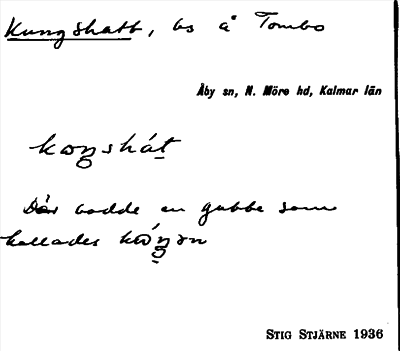 Kungshatt, bs å Tombo
Åby sn, N. Möre hd, Kalmar län
koŋshát
Där bodde en gubbe som
kallades kóŋən
STIG STJÄRNE 1936